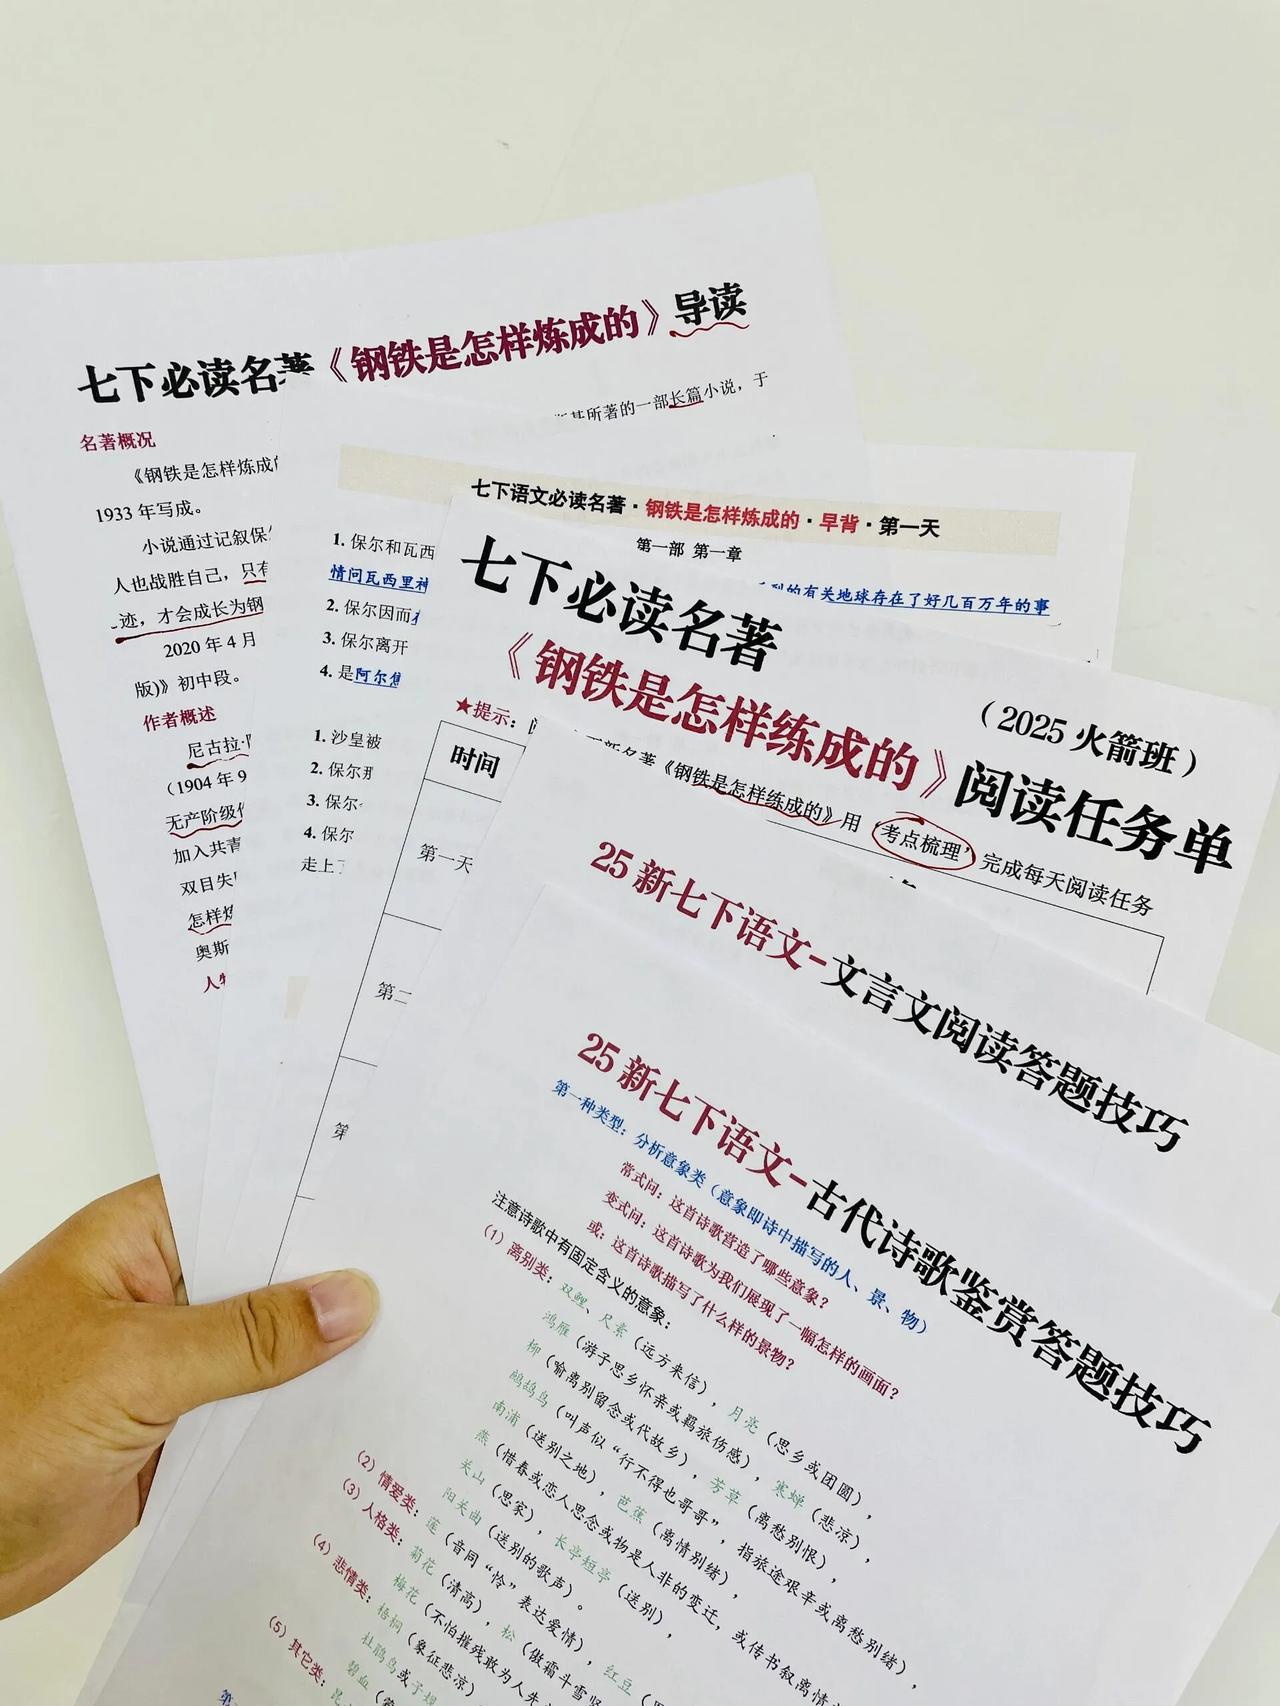 七下必读名著《钢铁是怎样炼成的》导读
名著概况
《钢铁是怎样炼成
所著的一部长篇小说，于
1933 年写成。
小说通过记叙保
人也战胜自己，只有
迹，才会成长为钢
2020 年 4 月
版)》初中段。
作者概述
尼古拉·
（1904 年 9
无产阶级
加入共青
双目失
怎样
奥斯
人
七下语文必读名著·钢铁是怎样炼成的·早背·第一天
第一部 第一章
1. 保尔和瓦西
的有关地球存在了好几百万年的事
情问瓦西里神
2. 保尔因而
3. 保尔离开
4. 是阿尔焦
1. 沙皇被
2. 保尔那
3. 保尔
4. 保尔
走上了
七下必读名著
（2025 火箭班）
《钢铁是怎样练成的》阅读任务单
★提示：
新名著《钢铁是怎样练成的》用“考点梳理”完成每天阅读任务
时间
第一天
第二
第
25 新七下语文-文言文阅读答题技巧
25 新七下语文-古代诗歌鉴赏答题技巧
第一种类型：分析意象类（意象即诗中描写的人、景、物）
常式问：这首诗歌营造了哪些意象？
变式问：这首诗歌为我们展现了一幅怎样的画面？
或：这首诗歌描写了什么样的景物？
注意诗歌中有固定含义的意象：
（1）离别类：双鲤、尺素（远方来信），月亮（思乡或团圆），
鸿雁（游子思乡怀亲或羁旅伤感），寒蝉（悲凉），
柳（喻离别留念或代故乡），芳草（离愁别恨），
鹧鸪鸟（叫声似“行不得也哥哥”，指旅途艰辛或离愁别绪），
南浦（送别之地），芭蕉（离情别绪），
燕（惜春或恋人思念或物是人非的变迁，或传书叙离情
关山（思家），长亭短亭（送别），
阳关曲（送别的歌声）。
（2）情爱类：莲（音同“怜”表达爱情），红豆
（3）人格类：菊花（清高），松（傲霜斗雪坚
梅花（不怕摧残敢为人先
（4）悲情类：梧桐（象征悲凉）
杜鹃鸟或子规
（5）其它类：
碧血
昆
第